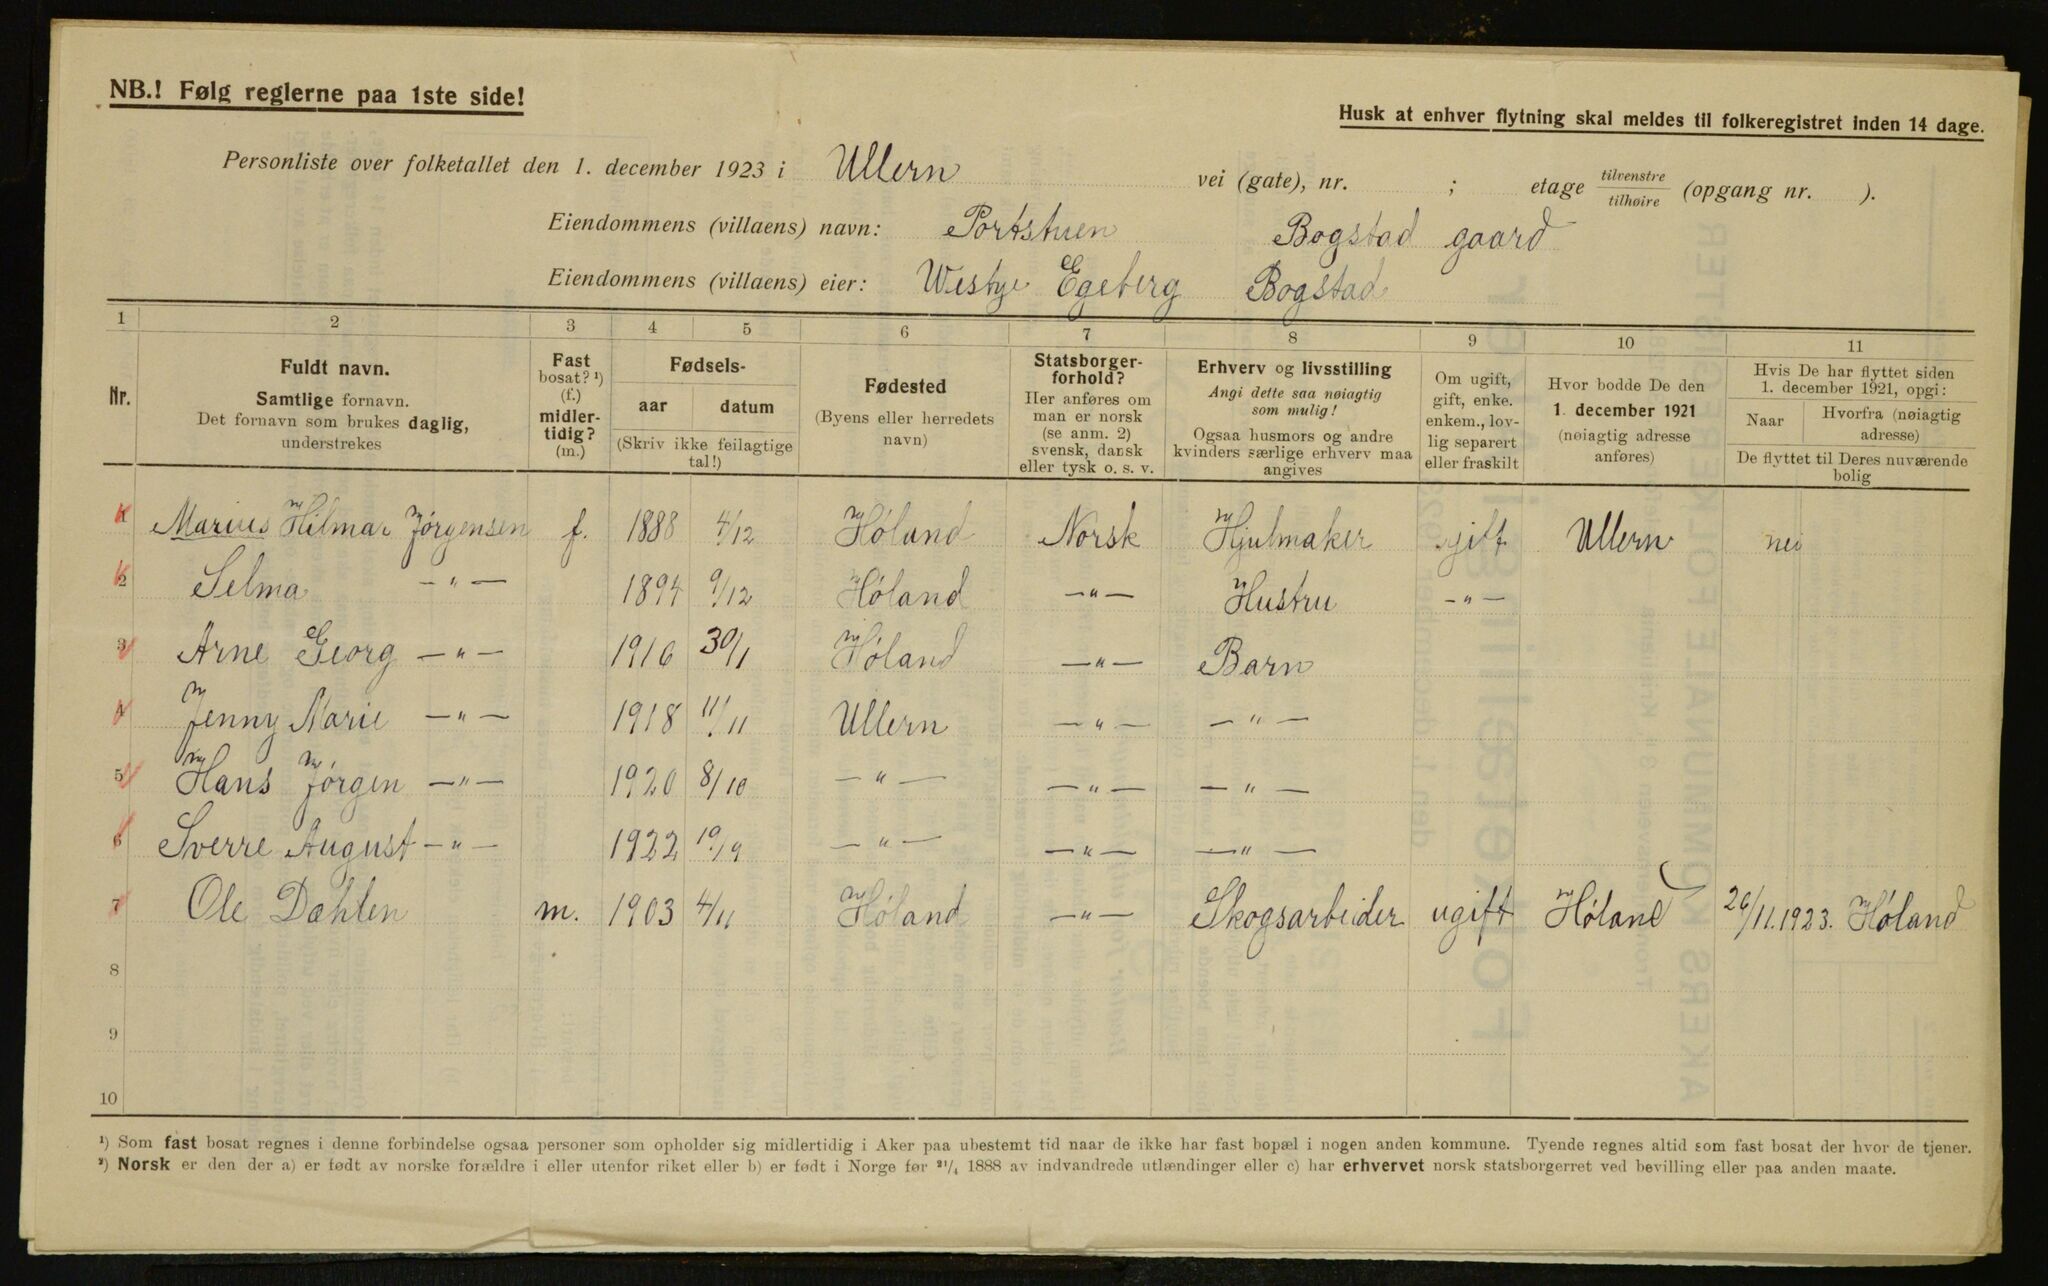 NB.! Følg reglerne paa 1ste side!
Husk at enhver flytning skal meldes til folkeregistret inden 14 dage.
Personliste over folketallet den 1. december 1923 i Ullern vei (gate), nr. ; etage tilvenstre/tilhøire (opgang nr. ).
Eiendommens (villaens) navn: Portstuen Bogstad gaard
Eiendommens (villaens) eier: Westye Egeberg Bogstad
1 2 3 4 5 6 7 8 9 10 11
Nr.
Fuldt navn.
Samtlige fornavn.
Det fornavn som brukes daglig,
understrekes
Fast
bosat? ¹)
(f.)
midler-
tidig?
(m.)
Fødsels-
aar datum
(Skriv ikke feilagtige
tal!)
Fødested
(Byens eller herredets
navn)
Statsborger-
forhold?
Her anføres om
man er norsk
(se anm. 2)
svensk, dansk
eller tysk o. s. v.
Erhverv og livsstilling
Angi dette saa nøiagtig
som mulig!
Ogsaa husmors og andre
kvinders særlige erhverv maa
angives
Om ugift,
gift, enke.
enkem., lov-
lig separert
eller fraskilt
Hvor bodde De den
1. december 1921
(nøiagtig adresse
anføres)
Hvis De har flyttet siden
1. december 1921, opgi:
Naar Hvorfra (nøiagtig
adresse)
De flyttet til Deres nuværende
bolig
1 Marius Hilmar Jørgensen f. 1888 4/12 Høland Norsk Hjulmaker gift Ullern nei
2 Selma —"— 1894 9/12 Høland —"— Hustru —"—
3 Arne Georg —"— 1916 30/1 Høland —"— Barn
4 Jenny Marie —"— 1918 11/11 Ullern —"— —"—
5 Hans Jørgen —"— 1920 8/10 —"— —"— —"—
6 Sverre August —"— 1922 10/9 —"— —"— —"—
7 Ole Dahlen m. 1903 4/11 Høland —"— Skogsarbeider ugift Høland 26/11.1923. Høland
8
9
10
¹) Som fast bosat regnes i denne forbindelse ogsaa personer som opholder sig midlertidig i Aker paa ubestemt tid naar de ikke har fast bopæl i nogen anden kommune. Tyende regnes altid som fast bosat der hvor de tjener.
²) Norsk er den der a) er født av norske forældre i eller utenfor riket eller b) er født i Norge før 21/4 1888 av indvandrede utlændinger eller c) har erhvervet norsk statsborgerret ved bevilling eller paa anden maate.